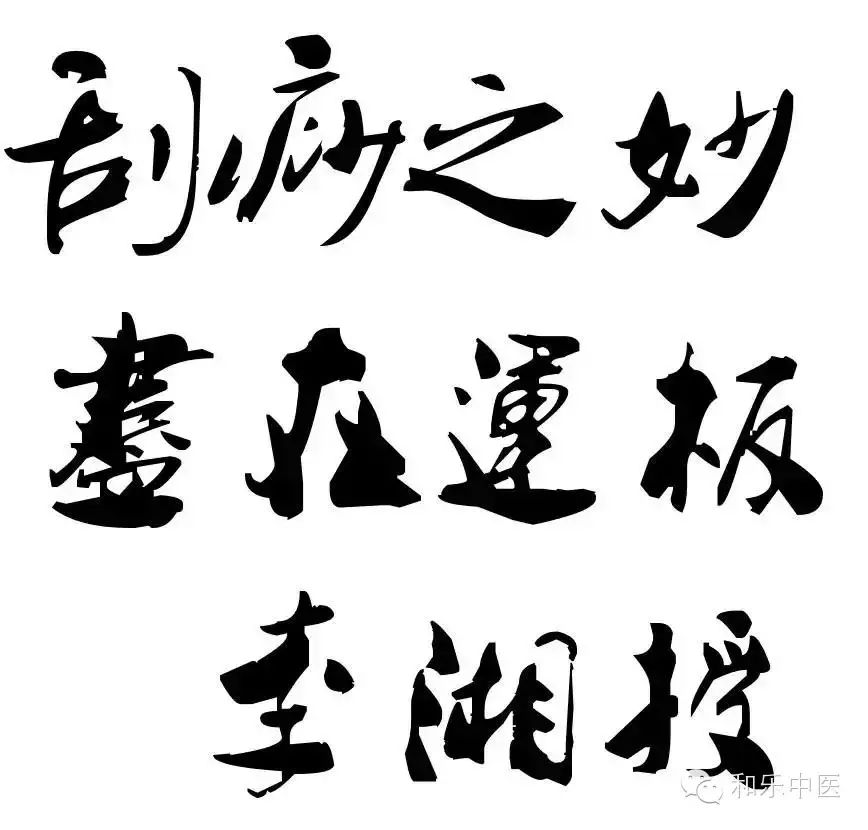 刮痧之妙
盡在運板
李湘授
和乐中医